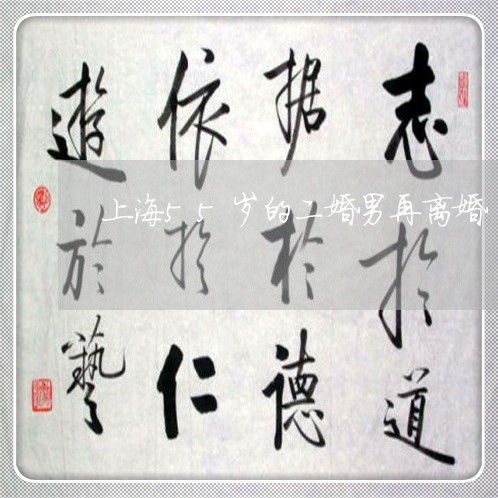 志於道
据於德
依於仁
遊於藝
上海55岁的二婚男再离婚